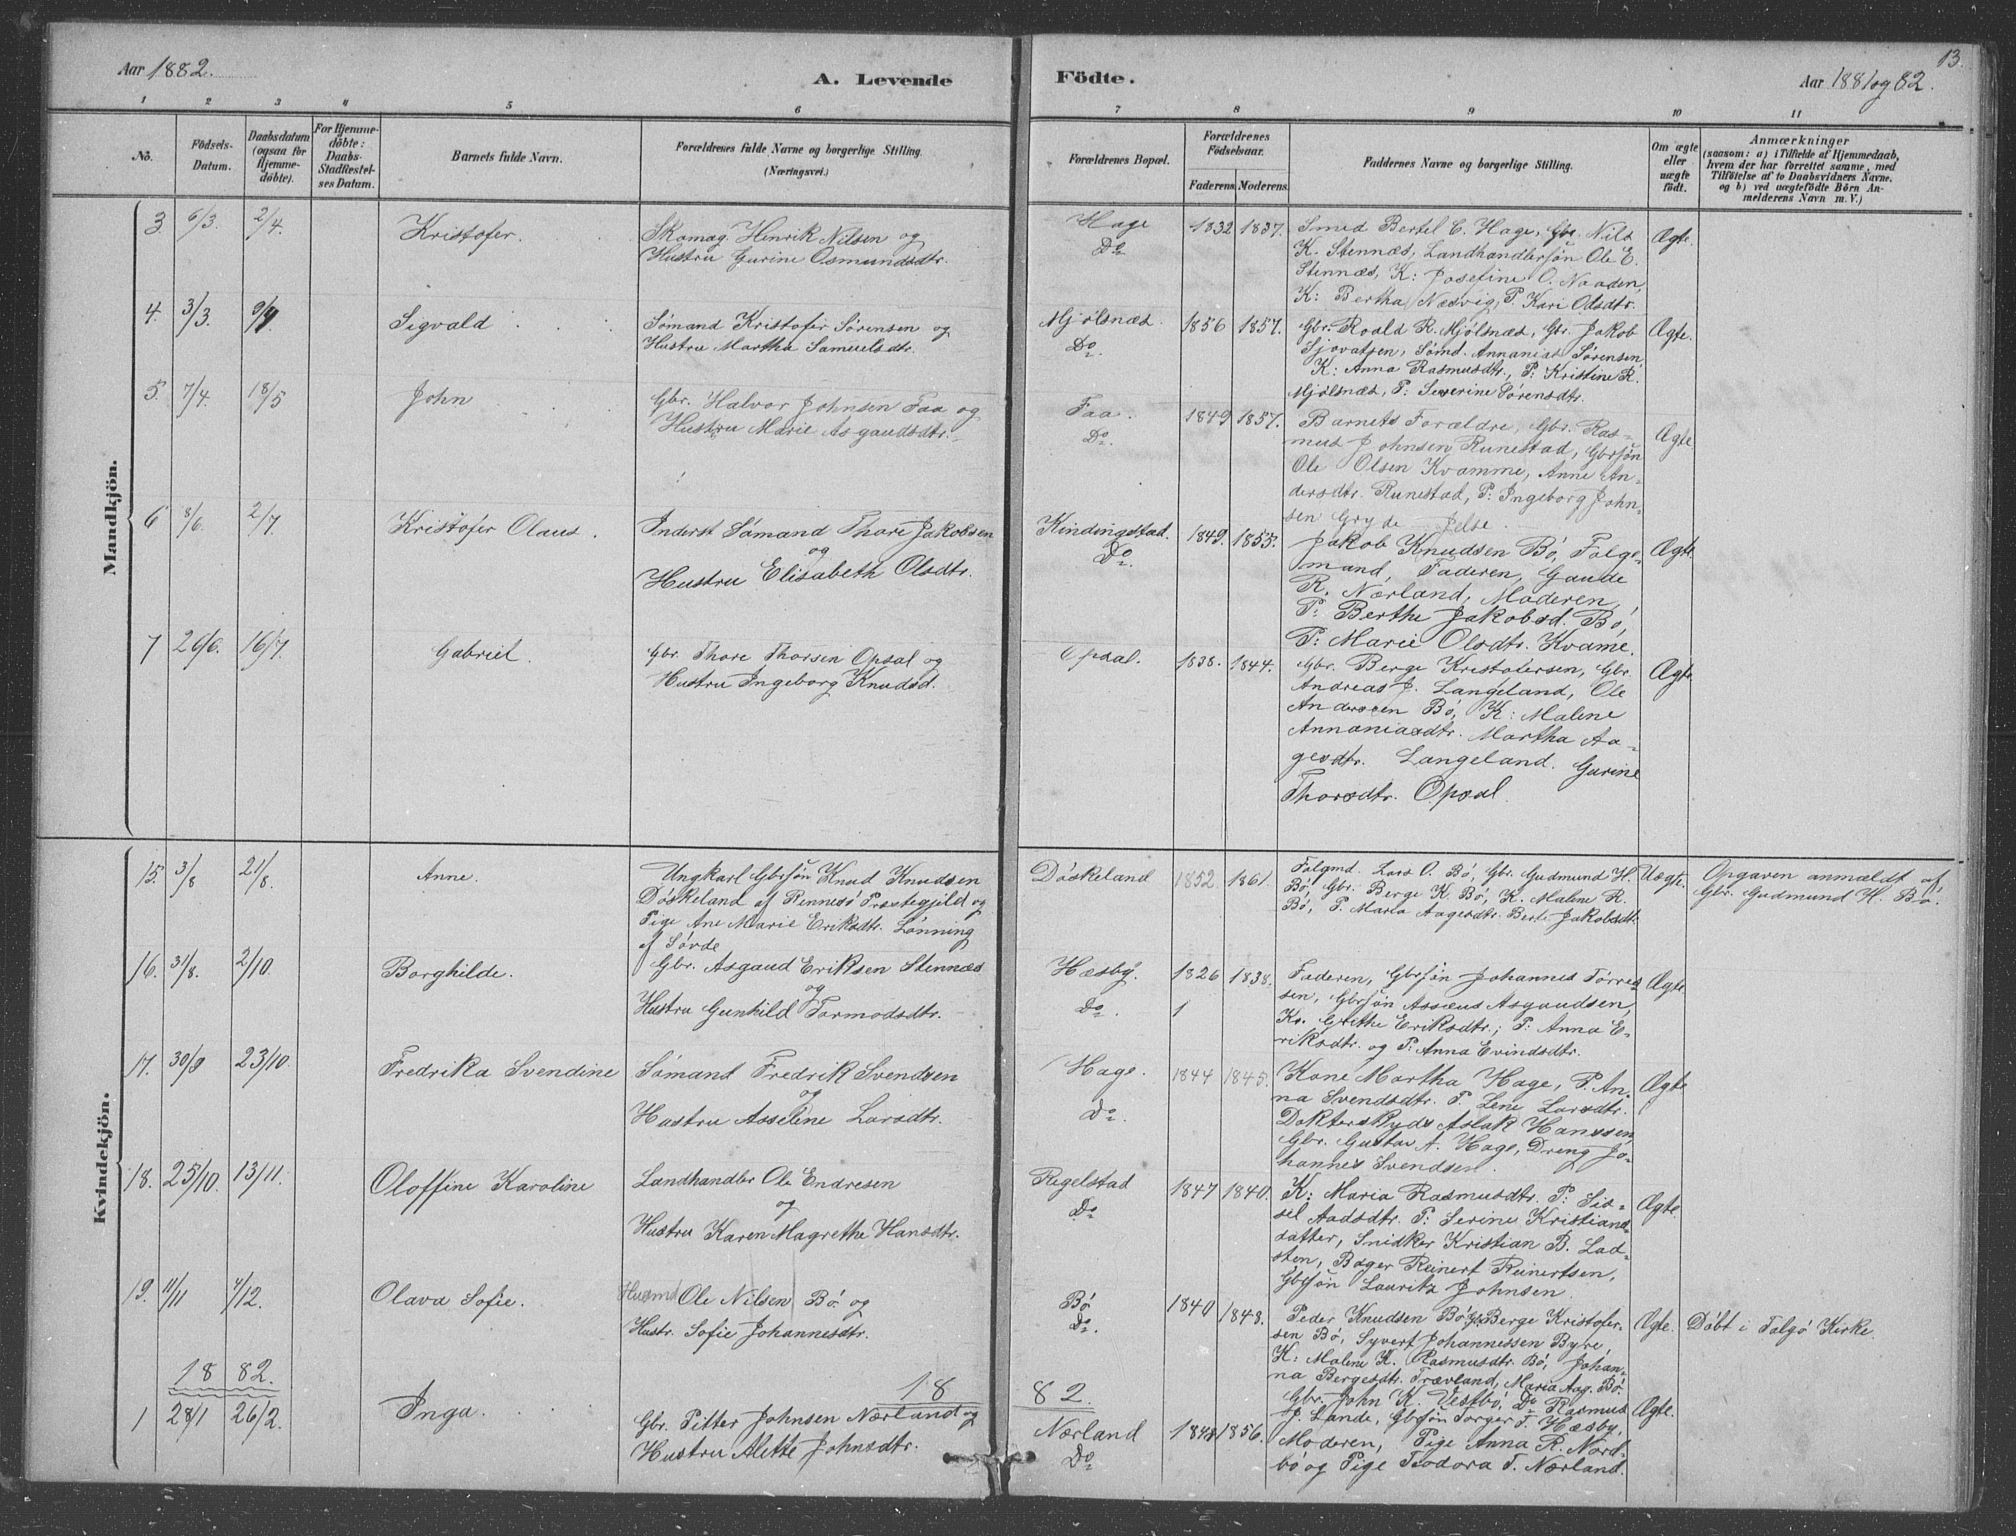 Aar 1882.
A. Levende Födte.
Aar 1881 og 82.
13.
1 2 3 4 5 6 7 8 9 10 11
No.
Födsels-
Datum.
Daabsdatum
(ogsaa for
Hjemme-
döbte).
For Hjemme-
döbte:
Daabs-
Stadfæstel-
ses Datum.
Barnets fulde Navn.
Forældrenes fulde Navne og borgerlige Stilling.
(Næringsvei.)
Forældrenes Bopæl.
Forældrenes
Födselsaar.
Faderens. Moderens.
Faddernes Navne og borgerlige Stilling.
Om ægte
eller
uægte
födt.
Anmærkninger
(saasom: a) i Tilfælde af Hjemmedaab,
hvem der har forrettet samme, med
Tilföielse af to Daabsvidners Navne,
og b) ved uægtefödte Börn An-
melderens Navn m. V.)
Mandkjön.
3. 6/3. 2/4. Kristofer.
Skomag. Henrik Nilsen og
Hustru Gurine Osmundsdtr.
Hage
Do
1832 1837.
Smed Bertel E. Hage, Gbr. Nils
K. Stennæs, Landhandlersøn Ole E.
Stennæs, K: Josefine O. Naaden,
K: Bertha Næsvig, P. Kari Olsdtr.
Ægte.
4. 3/3. 9/4. Sigvald
Sømand Kristofer Sørensen og
Hustru Martha Samuelsdtr.
Mjølsnæs.
Do.
1856 1857.
Gbr. Roald R. Mjølsnæs, Gbr. Jakob
Sjovatsen, Sømd. Annanias Sørensen,
K: Anna Rasmusdtr., P: Kristine R.
Mjølsnæs, P: Severine Sørensdtr.
Ægte.
5. 7/4. 18/5 John
Gbr. Halvor Johnsen Faa og
Hustru Marie Asgaudsdtr.
Faa.
Do.
1849 1857.
Barnets Forældre, Gbr. Ras-
mus Johnsen Runestad, Gbrsøn
Ole Olsen Kvamme, Anne An-
dersdtr. Runestad, P: Ingeborg John-
sen Gryde Jelse.
Ægte
6 8/6. 2/7. Kristofer Olaus.
Inderst Sømand Thore Jakobsen
og
Hustru Elisabeth Olsdtr.
Kindingstad.
Do.
1849. 1855.
Jakob Knudsen Bø, Følge-
mand, Faderen, Gaude
R. Nærland, Moderen,
P: Berthe Jakobsd. Bø,
P: Marie Olsdtr. Kvame.
Ægte
7 20/6. 16/7. Gabriel.
Gbr. Thore Thorsen Opsal og
Hustru Ingeborg Knudsd.
Opsal.
1838. 1844.
Gbr. Berge Kristofersen, Gbr.
Andreas J. Langeland, Ole
Anderssen Bø, K: Malene
Annaniasdtr. Martha Aa-
gesdtr. Langeland. Gurine
Thorsdtr. Opsal.
Ægte
Kvindekjön.
15. 3/8 21/8. Anne.
Ungkarl Gbrsøn Knud Knudsen
Døskeland af Rennesø Præstegjeld og
Pige Ane Marie Eriksdtr. Lønning
af Søvde
Døskeland
1852. 1861.
Følgmd. Lars O. Bø, Gbr. Gudmund H.
Bø, Gbr. Berge K. Bø, K. Malene R.
Bø, P. Maria Aagesdtr. Berte Jakobsdt.
Uægte.
Opgaven anmeldt af
Gbr. Gudmund H. Bø.
16. 31/8. 2/10 Borghilde.
Gbr. Asgaud Eriksen Stennæs
og
Hustru Gunhild Tormodsdtr.
Hæsby.
Do.
1826 1838.
Faderen, Gbrsøn Johannes Torres-
sen, Gbrsøn Asseus Asgaudsen,
Ko. Grethe Eriksdtr.; P: Anna E-
riksdtr. og P: Anna Evindsdtr.
Ægte.
17. 30/9 23/10. Fredrika Svendine
Sømand Fredrik Svendsen
og
Hustru Asseline Larsdtr.
Hage.
Do.
1844 1845.
Kone Martha Hage, P. An-
na Svendsdtr. P. Lene Larsdtr.
Dokterskyds Aslak Hanssen,
Gbr. Gustav A. Hage, Dreng Jo-
hannes Svendsen.
Ægte
18. 25/10. 13/11. Oloffine Karoline
Landhandler Ole Endresen
og
Hustru Karen Magrethe Hansdtr.
Regelstad
Do
1847 1840.
K: Maria Rasmusdtr. P: Sis-
sel Aadsdtr. P: Serine Kristians-
datter, Snidker Kristian B. Lad-
sten, Bager Reinert Reinertsen,
Gbrsøn Lauritz Johnsen.
Ægte.
19. 11/11 4/12. Olava Sofie.
Husmd Ole Nilsen Bø og
Hustr. Sofie Johannesdtr.
Bø
Do.
1840 1848.
Peder Knudsen Bø, Gbr Berge Kristofer-
sen Bø, Syvert Johannessen Byre,
K: Malene K. Rasmusdtr. Bø, Johan-
na Bergesdtr. Trævland, Maria Aag. Bø.
Ægte.
Døbt i Talgø Kirke.
18 82.
18 82.
1 28/1 26/2. Inga.
Gbr. Pitter Johnsen Nærland og
Hustru Alette Johnsdtr.
Nærland
Do.
1848 1856.
Gbr. John K. Vestbø, Do Rasmus
J. Lande, Gbrsøn Torger T. Hæsby,
Moderen, Pige Anna R. Nord-
bø og Pige Teodora T. Nærland.
Ægte.